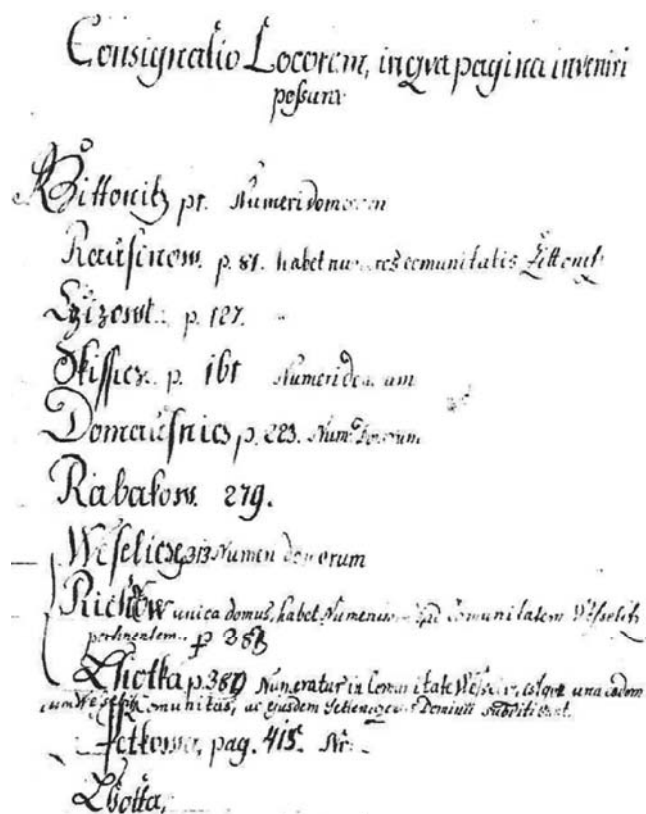 Consignatio Locorem, in qva pagina inveniri
possunt
Zittonitz pt. Numeri domorum
Raúsinow. p. 81. habet numeros comunitatis Zittonitz
p. 127.
Skissicz. p. 161 Numeri domorum
Domaúsnicz p. 223. Num. Domorum
Rabakow. 279.
Weselicz p. 313 Numeri domorum
unica domus, habet Numerum ad Comunitatem Wesselitz
pertinentem. p
Lhotka p. 389 Numeratur in Comunitate una eadem
cum Comunitas, ac ejusdem Dominii subditi sunt.
pag. 415. Nr.
Lhotta,